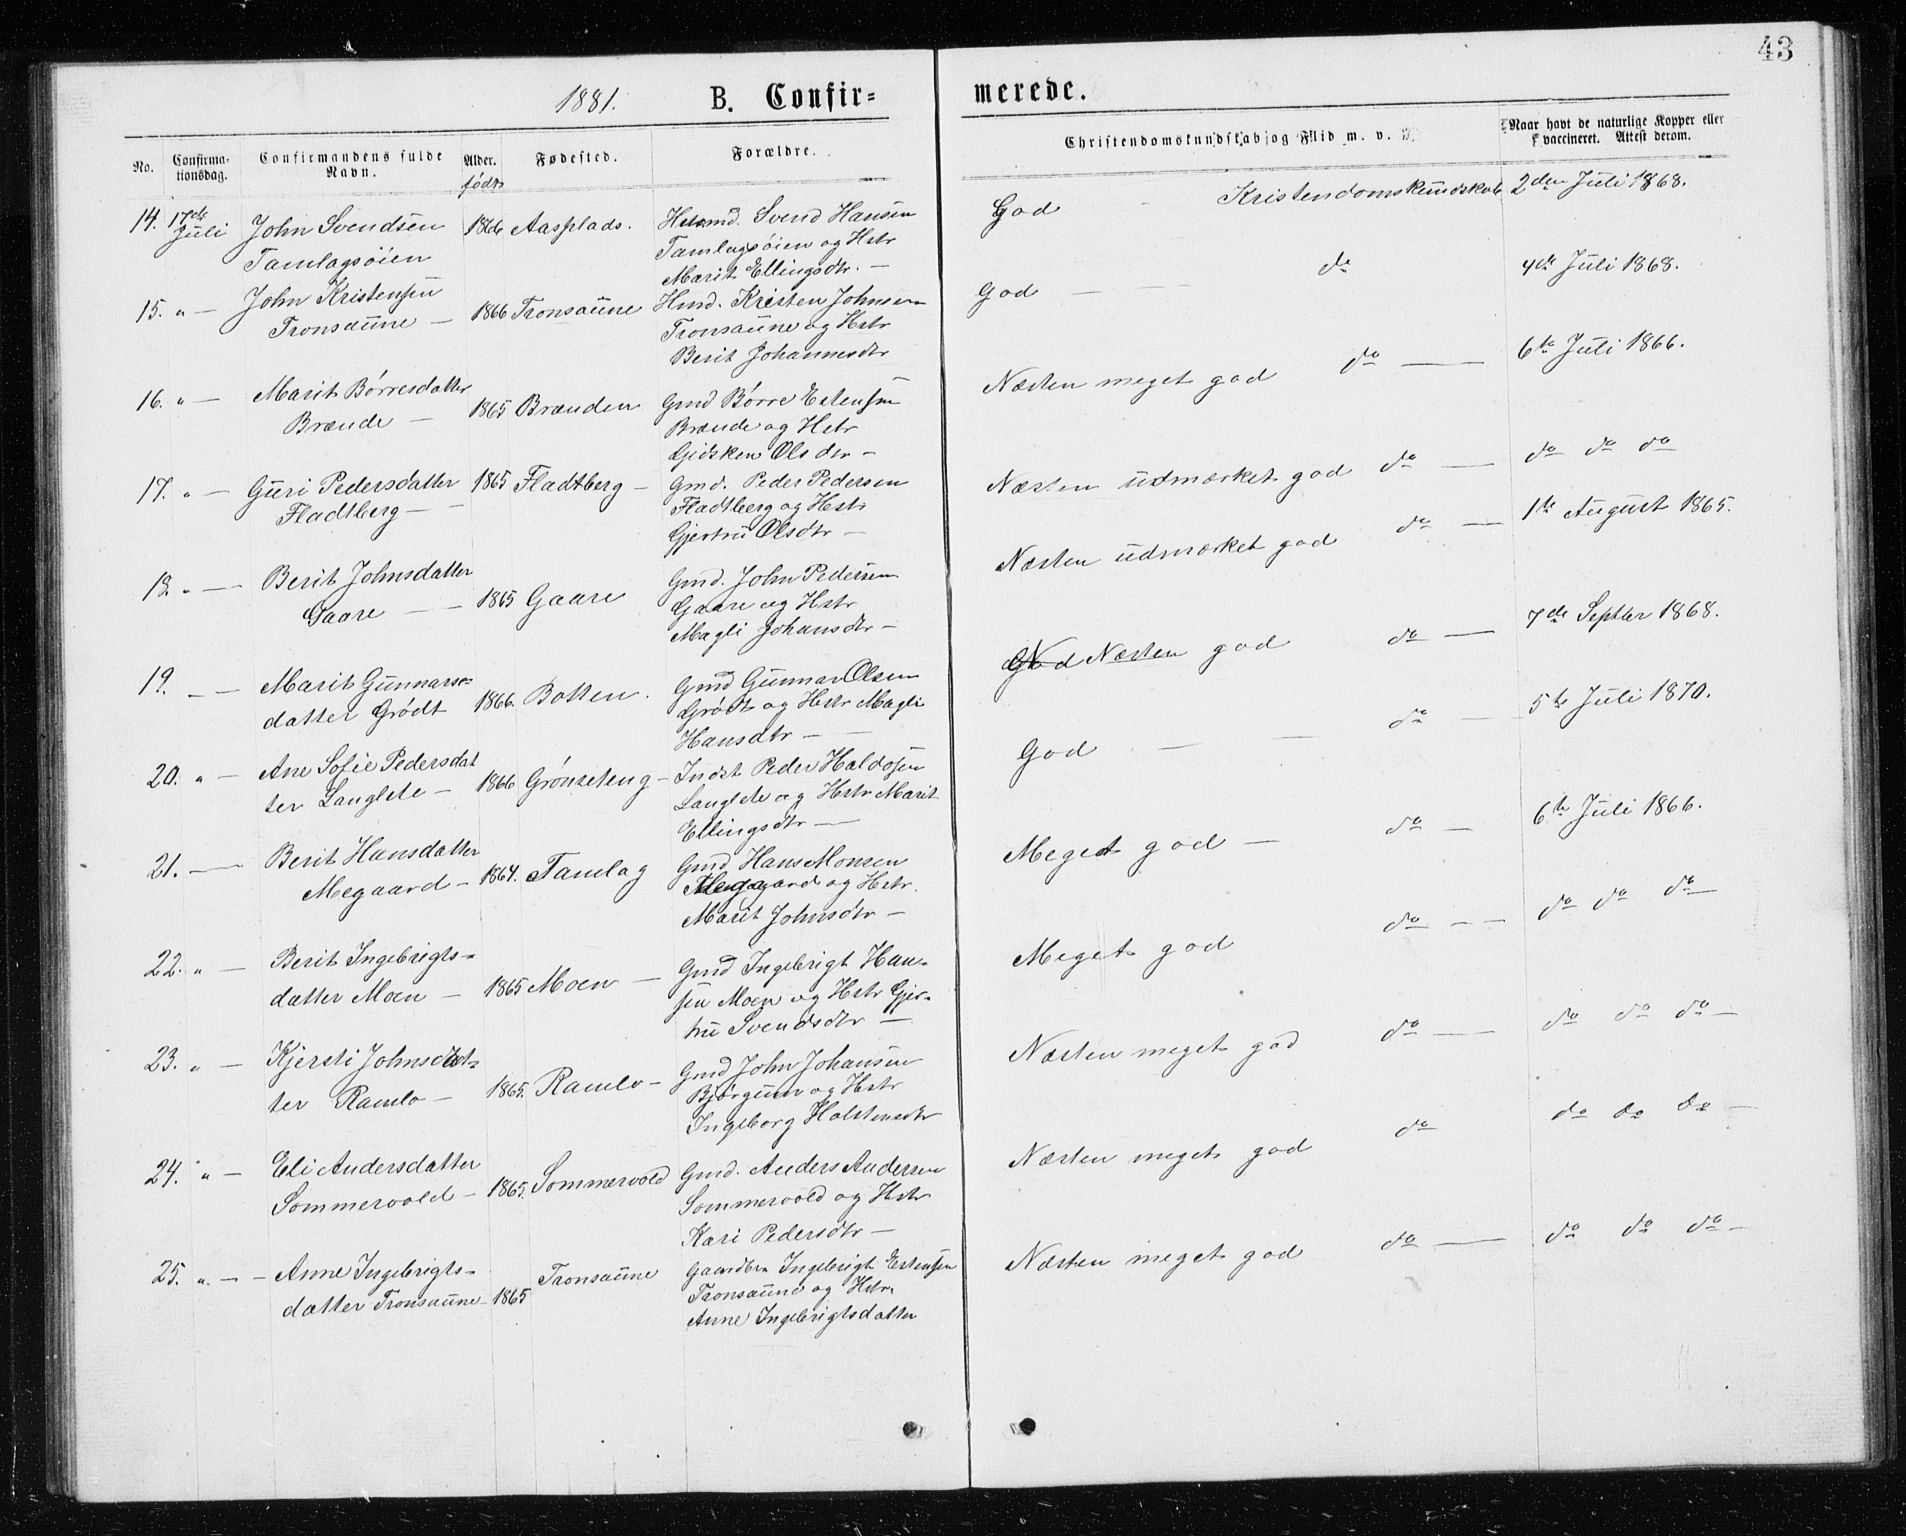 43
1881. B. Confir= merede.
No. Confirma-tionsdag. Confirmandens fulde Navn. Alder. født Fødested. Forældre. Christendomskundskab og Flid m. v. Naar havt de naturlige Kopper eller vaccineret. Attest derom.
14. 17de Juli John Svendsen 1866 Aasplads. Svend Hansen God Kristendomskundskab 2den Juli 1868.
Tamlagsöien Tamlagsöien og Hstr
Marit Ellingsdtr. —
15. " — John Kristensen 1866 Tronsaune Hmd. Kristen Johnsen God — — — do 4de Juli 1868.
Tronsaune — Tronsaune og Hstr
Berit Johannesdtr
16. " — Marit Börresdatter 1865 Brænden Gmd Börre Estensen Næsten meget god do — 6te Juli 1866.
Brænde — Brænde og Hstr
Gidsken Olsdtr —
17. " — Guri Pedersdatter 1865 Fladtberg — Gmd. Peder Pedersen Næsten udmærket god do — do do do
Fladtberg — — Fladtberg og Hstr
Gjertru Olsdtr —
18. " — Berit Johnsdatter 1865 Gaare Gmd. John Pedersen Næsten udmærket god do — 1te August 1865.
Gaare — — Gaare og Hstr
Magli Johansdtr —
19. — — Marit Gunnars= 1866. Botten. Gmd Gunnar Olsen God Næsten god do — 7de Septbr 1868.
datter Grödt Grödt og Hstr Magli
Hansdtr — —
20. " — Ane Sofie Pedersdat 1866 Grönseteng — Indst Peder Haldosen God — — do — 5te Juli 1870.
ter Langlete — Langlete og Hstr Marit
Ellingsdtr —
21. — Berit Hansdatter 1864. Tamlag Gmd Hans Monsen Meget god — do — 6te Juli 1866.
Megaard — Megaard og Hstr.
Marit Johnsdtr —
22. " — Berit Ingebrigts= 1865 Moen — Gmd Ingebrigt Han= Meget god do — — do do do —
datter Moen — sen Moen og Hstr Gjer=
tru Svendsdtr —
23. " — Kjersti Johnsdat= 1865. Ramlo — Gmd John Johansen Næsten meget god do — do do do —
ter Ramlo — Bjørgum og Hstr
Ingeborg Halstensdtr
24. " — Eli Andersdatter 1865. Sommervold Gmd. Anders Andersen Næsten meget god do do do do —
Sommervold — Sommervold og Hstr
Kari Pedersdtr —
25. " — — Anne Ingebrigts= 1865 Tronsaune Ingebrigt Estensen Næsten meget god do — do do do —
datter Tronsaune — Tronsaune og Hstr.
Anne Ingebrigtsdatter